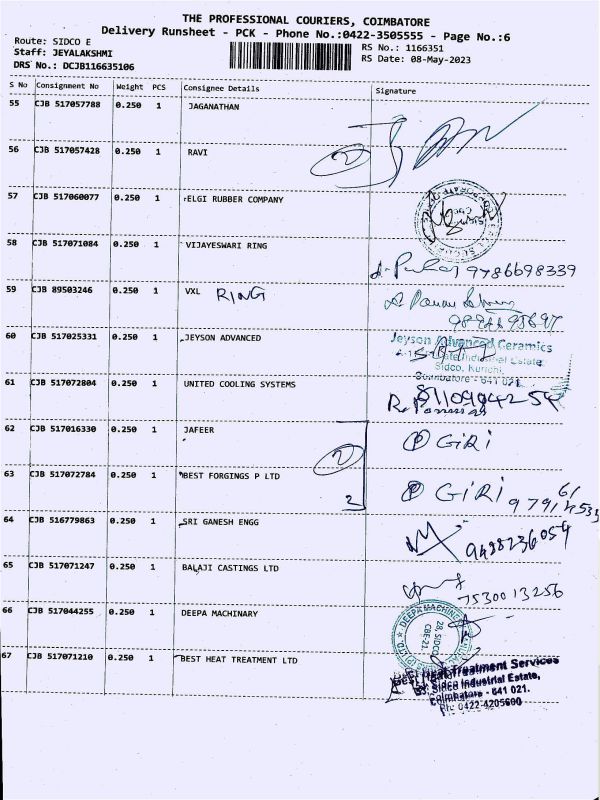 THE PROFESSIONAL COURIERS, COIMBATORE
Delivery Runsheet - PCK - Phone No.:0422-3505555 - Page No.:6
Route: SIDCO E
RS No.: 1166351
Staff: JEYALAKSHMI
RS Date: 08-May-2023
DRS No.: DCJB116635106
S No Consignment No Weight PCS Consignee Details Signature
55 CJB 517057788 0.250 1 JAGANATHAN
56 CJB 517057428 0.250 1 RAVI
2
57 CJB 517060077 0.250 1 ELGI RUBBER COMPANY
58 CJB 517071084 0.250 1 VIJAYESWARI RING
9786698339
59 CJB 89503246 0.250 1 VXL RING
60 CJB 517025331 0.250 1 JEYSON ADVANCED
Jeyson Advanced Ceramics
Industrial Estate
Sidco, Kurichi,
Coimbatore - 641 021.
61 CJB 517072804 0.250 1 UNITED COOLING SYSTEMS
62 CJB 517016330 0.250 1 JAFEER
GIRI
2
63 CJB 517072784 0.250 1 BEST FORGINGS P LTD
GIRI
2
64 CJB 516779863 0.250 1 SRI GANESH ENGG
65 CJB 517071247 0.250 1 BALAJI CASTINGS LTD
7530013256
66 CJB 517044255 0.250 1 DEEPA MACHINARY
DEEPA MACHINE
28, SIDCO
CBE-21.
67 CJB 517071210 0.250 1 BEST HEAT TREATMENT LTD
Best Heat Treatment Services
Sidco Industrial Estate,
Coimbatore - 641 021.
Ph: 0422-4205600